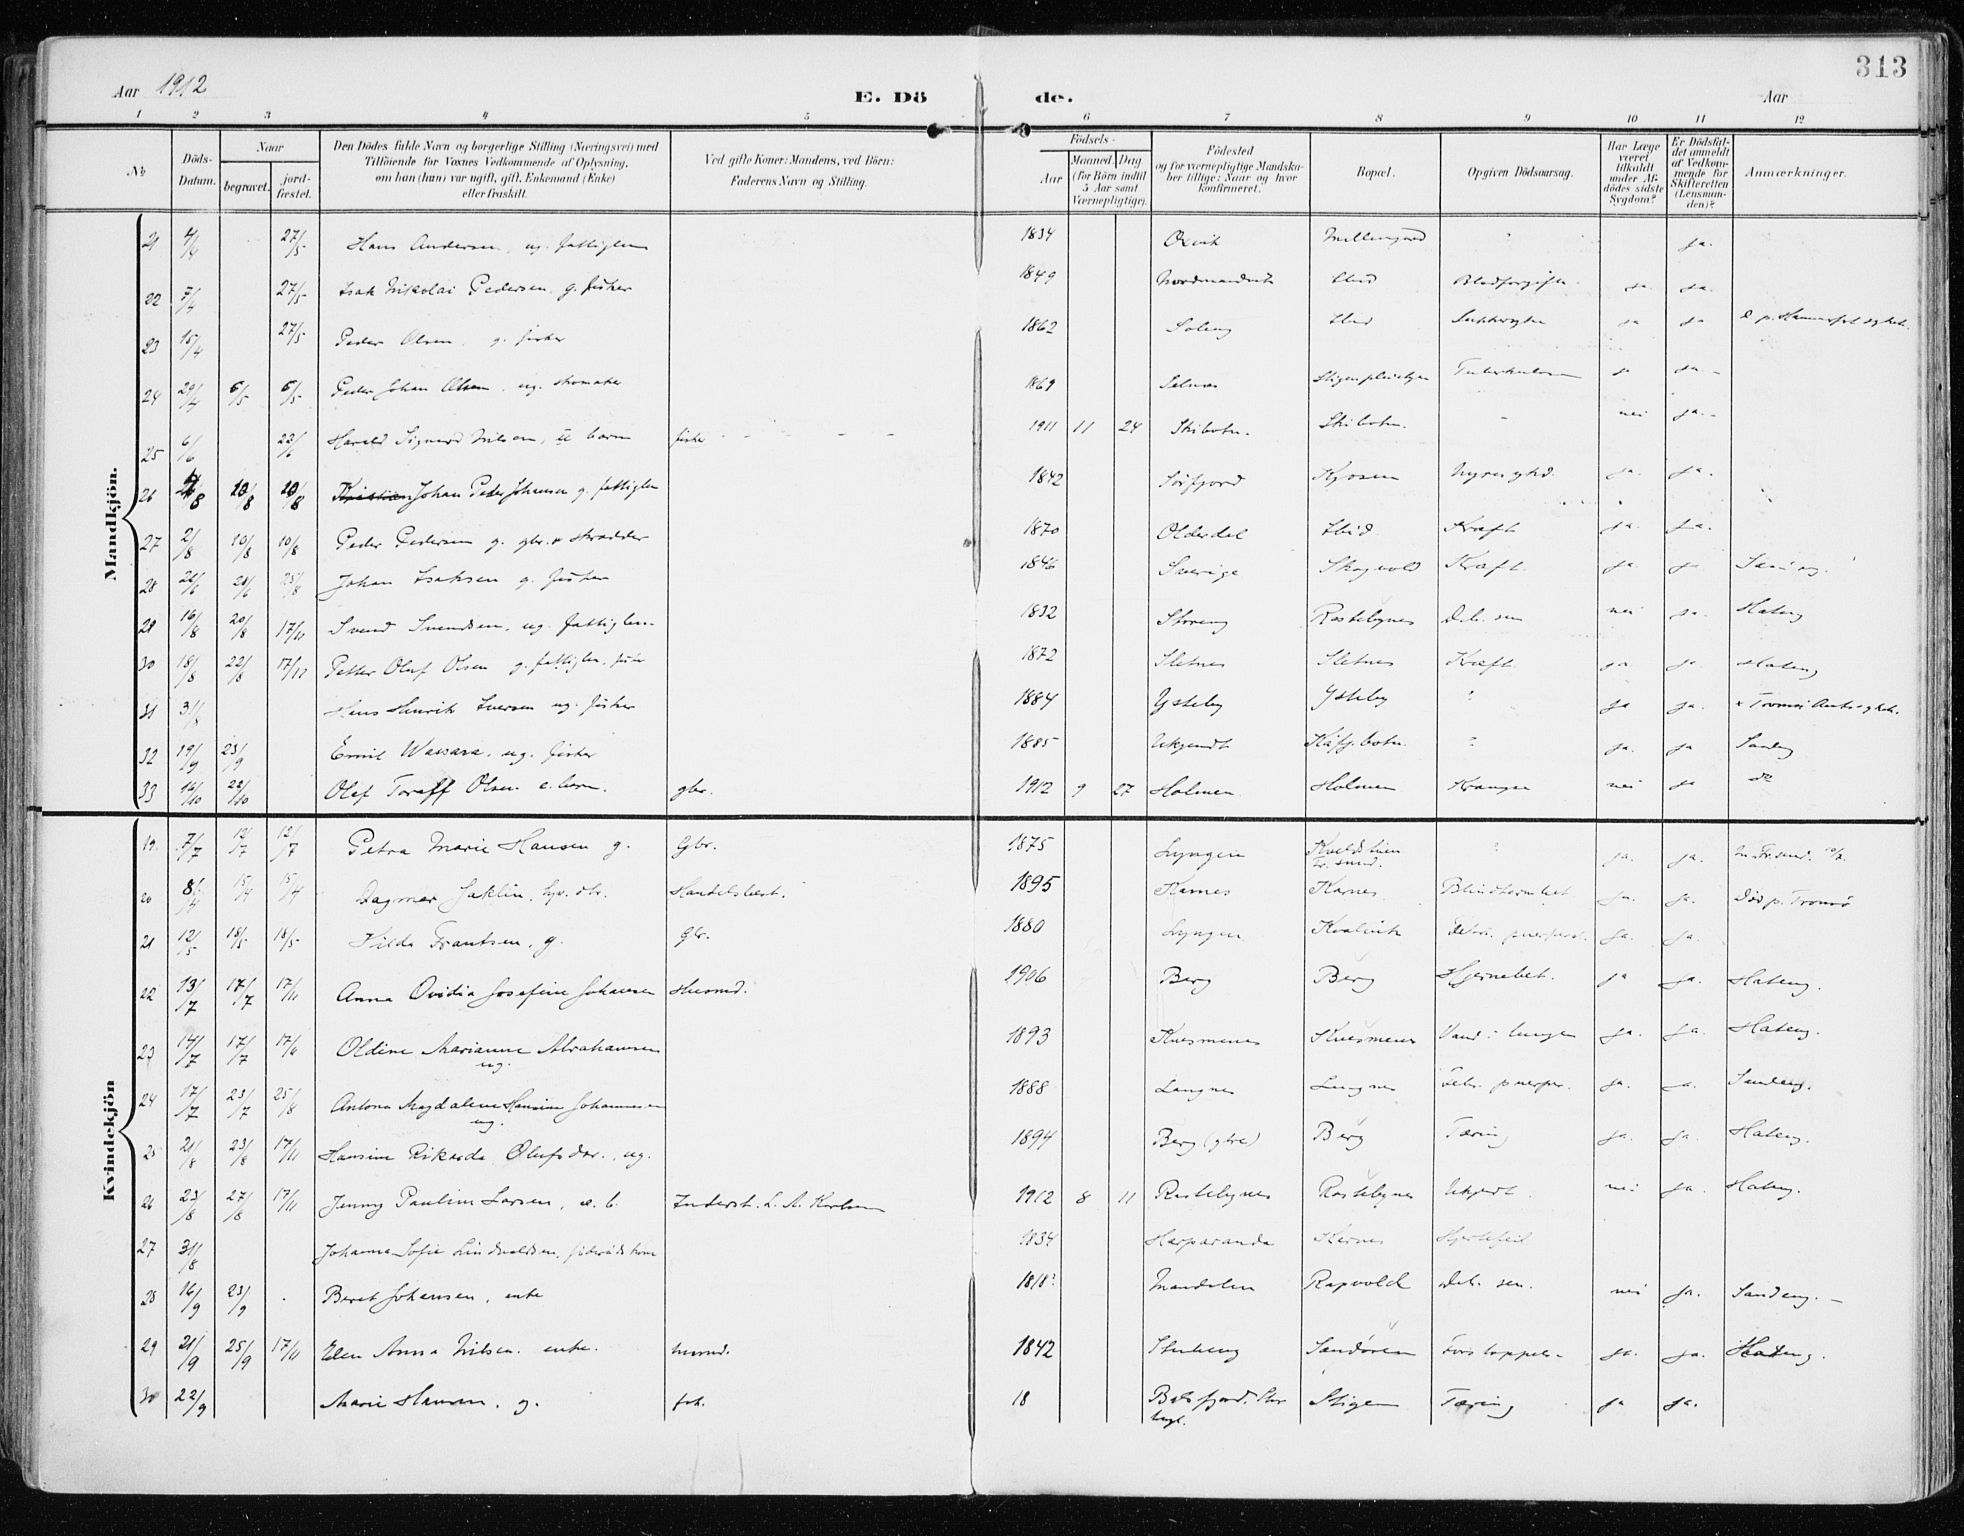 313
Aar 1912
E. Dö de.
Aar
1 2 3 4 5 6 7 8 9 10 11 12
No
Döds-Datum.
Naar
begravet.
jord-fæstet.
Den Dödes fulde Navn og borgerlige Stilling (Næringsvei) med
Tilföiende for Voxnes Vedkommende af Oplysning,
om han (hun) var ugift, gift, Enkemand (Enke)
eller fraskilt.
Ved gifte Koner: Mandens, ved Börn:
Faderens Navn og Stilling.
Födsels-
Aar
Maaned. Dag
(for Börn indtil
5 Aar samt
Værnepligtige).
Födested
og for værnepligtige Mandska-
ber tillige: Naar og hvor
konfirmeret.
Bopæl.
Opgiven Dödsaarsag.
Har Læge
været
tilkaldt
under Af-
dödes sidste
Sygdom?
Er Dödsfal-
det anmeldt
af Vedkom-
mende for
Skifteretten
(Lensman-
den)?
Anmærkninger.
Mandkjön.
21 4/4 27/5 Hans Andersen, ug. fattiglem 1834 ja.
22 7/4 27/5 Isak Nikolai Pedersen, g. fisker 1849 ja. ja.
23 15/4 27/5 Peder Olsen, g. fisker 1862 ja ja
24 29/4 6/5 6/5 Peder Johan Olsen, ug. skomaker 1869 ja ja
25 6/6 23/6 Harald Signard Nilsen, barn fisker 1911 11 24 Skibotn. Skibotn. nei ja.
26 10/8 10/8 Kristian Johan Peder Johansen g. fattiglem 1842 Sörfjord Kjosen ja. ja.
27 2/8 10/8 10/8 Peder Pedersen g. gbr. & skrædder 1870 Olderdal Kræft ja. ja.
28 21/6 28/6 25/8 Johan Isaksen g. fisker 1846 Sverige Skogvold Kræft. ja. ja
29 16/8 20/8 17/11 Svend Svendsen, ug. fattiglem 1832 Storeng Rastebynes Deb. sen nei ja. Hateng
30 18/8 22/8 17/11 Petter Oluf Olsen g. fattiglem, fisker 1872 Sletnes Sletnes Kræft ja ja. Hateng
31 31/8 Hans Henrik Iversen ug. fisker 1884 Ysteby Ysteby ? ja ja.
32 19/9 23/9 Emil Waisara, ug. fisker 1885 Ukjendt Kåfj.botn. ? ja. ja Sandeng
33 16/10 22/10 Olaf Toralf Olsen e. barn. gbr. 1912 9 27 Holmen. Holmen nei ja do
Kvindekjön
19. 7/7 12/7 12/7 Petra Marie Hansen g. Gbr. 1875 Lyngen ja. ja.
20 8/4 15/4 15/4 Dagmar Jaklin, Handelsbest. 1895 Karnes Karnes Blindtarmbet ja. ja. Död p. Tromsö
21 12/5 18/5 18/5 Hilda Frantsen, g. Gbr. 1880 Lyngen Kvalvik Febr. puerper. ja. ja.
22 13/7 17/7 17/11 Anna Ovidia Josefine Johansen Husmd. 1906 Berg Berg Hjernebet. ja ja. Hateng.
23 14/7 17/7 Oldine Marianne Abrahamsen ug. 1893 Kvesmenes Kvesmenes Vand i lungen ja. ja. Hateng.
24 17/7 23/7 25/8 Antona Magdalene Hansine Johannesen ug. 1888 Langnes Lungnes Febr. puerper. ja. ja. Sandeng.
25 21/8 23/8 17/11 Hansine Rikarda Olufsdtr., ug. 1894 Berg (ytre) Berg Tæring ja. ja. Hateng.
26 23/8 27/8 17/11 Jenny Pauline Larsen, æ. b. Inderst. L. A. Karlsen 1912 8 11 Rastebynes Rastebynes Ukjendt. nei ja. Hateng.
27 31/8 Johanna Sofie Lindvaldsen, föderådskone 1834 Harparanda Karnes Hjertefeil
28 16/9 23/9 Beret Johansen, enke 1818? Mandalen Rapvold Deb. sen. nei ja. Sandeng.
29 21/9 25/9 17/11 Elen Anna Nilsen. enke. 1842 Stubeng Sandören Forstoppelse ja. ja. Hateng.
30 22/9 Marie Hansen, g. 18 Balsfjord. Stigen Tæring ja ja.